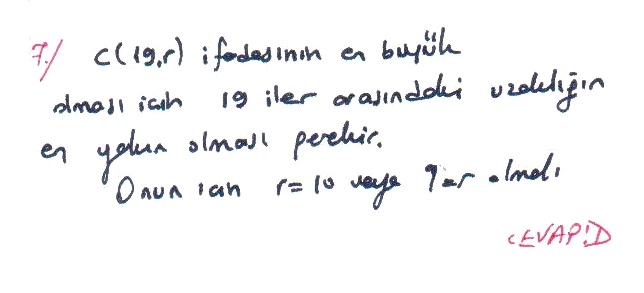 7./ C(19,r) ifadesinin en büyük
olması için 19 iler arasındaki uzaklığın
en yakın olması gerekir.
Onun için r=10 veya 9=r olmalı
CEVAP:D